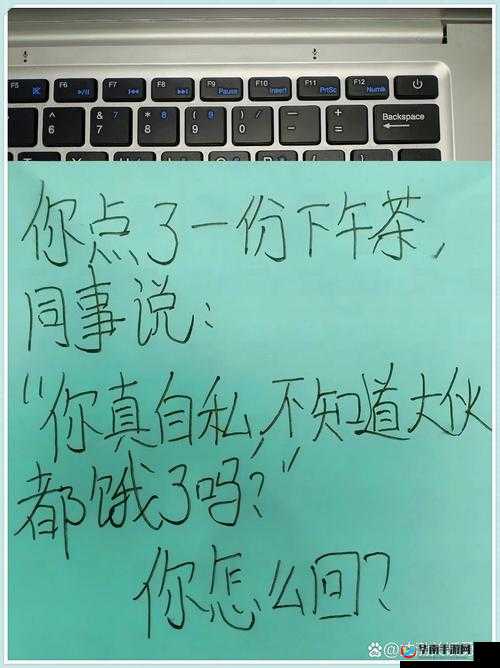 F5 F6 F7 F8 F9 F10 F11 F12
Pause Insert PrtSc Numlk
^ & 7 * 8 ( 9 ) — + Backspace
6 7 8 9 0 - =
你点了一份下午茶,
同事说:
"你真自私,不知道大伙
都饿了吗?"
你怎么回?
华南手游网